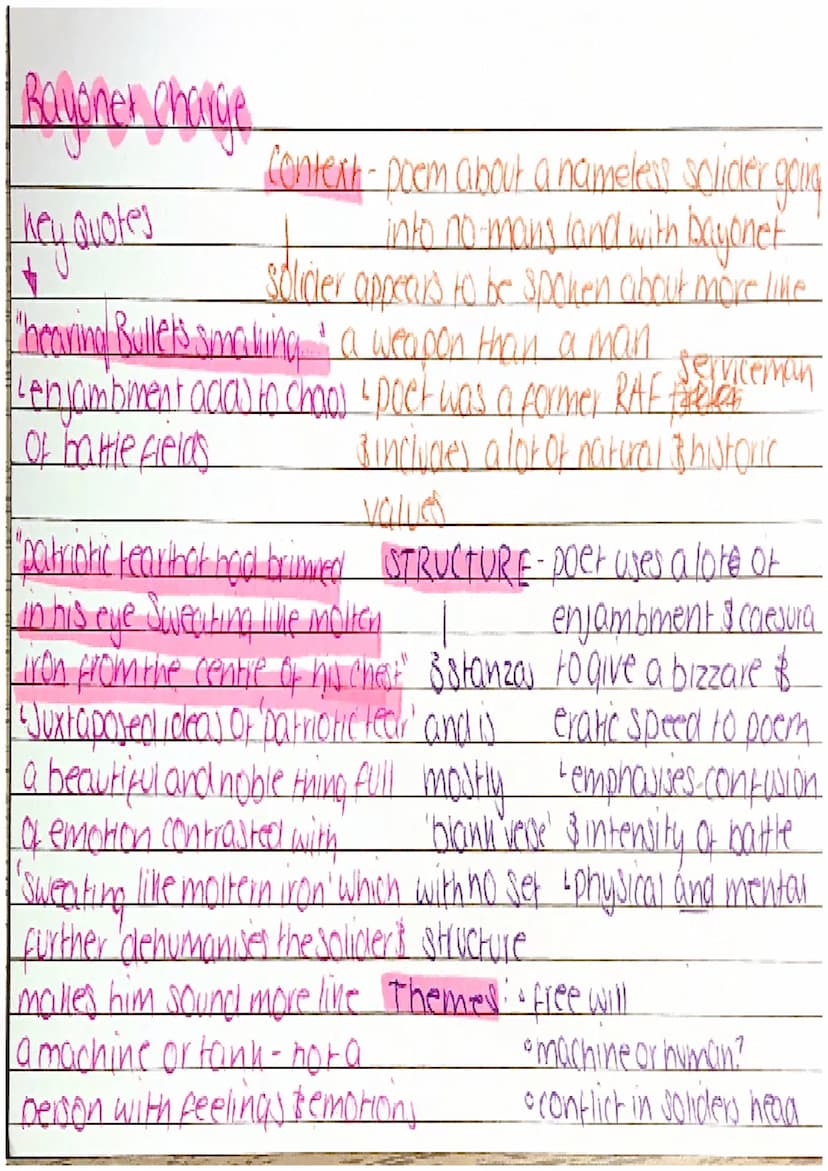 Bayonet Charge
Context - poem about a nameless solider going
into no-mans land with bayonet
solider appears to be spoken about more like
a weapon than a man
↳ poet was a former RAF serviceman
& includes a lot of natural & historic
values
key quotes
↓
"hearing Bullets smaking..."
↳ enjambment adds to chaos
of battle fields
"patriotic tear that had brimmed
in his eye Sweating like molten
iron from the centre of his chest"
↳ Juxtaposed ideas of 'patriotic tear'
a beautiful and noble thing full
of emotion contrasted with
'sweating like moltern iron' which
further dehumanises the solider &
makes him sound more like
a machine or tank - not a
person with feelings & emotions
STRUCTURE - poet uses a lote of
enjambment & caesura
to give a bizzare &
eratic speed to poem
↳ emphasises confusion
& intensity of battle
↳ physical and mental
3 stanzas
and is
mostly
'blank verse'
with no set
structure
Themes: • free will
• machine or human?
• conflict in soliders head